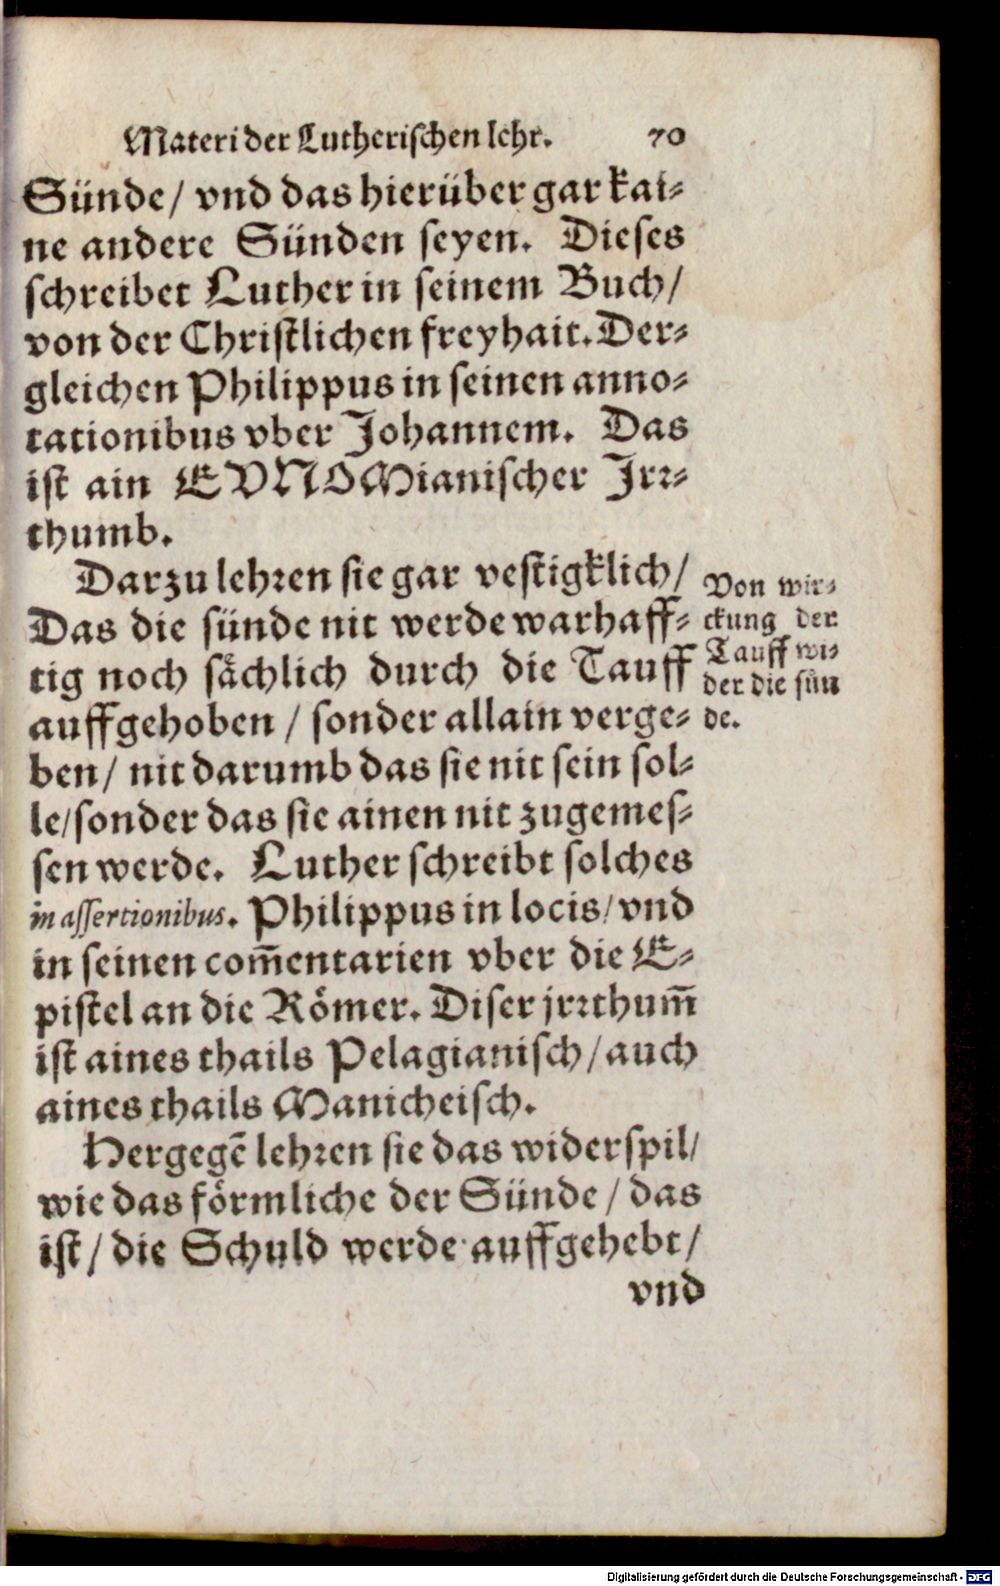 Materi der Lutherischen lehr. 70
Sünde / vnd das hierüber gar kai⸗
ne andere Sünden seyen. Dieses
schreibet Luther in seinem Buch /
von der Christlichen freyhait. Der⸗
gleichen Philippus in seinen anno⸗
tationibus vber Johannem. Das
ist ain EVNOMianischer Irr⸗
thumb.
Darzu lehren sie gar vestigklich /
Das die sünde nit werde warhaff⸗
tig noch sächlich durch die Tauff
auffgehoben / sonder allain verge⸗
ben / nit darumb das sie nit sein sol⸗
le / sonder das sie ainen nit zugemes⸗
sen werde. Luther schreibt solches
in assertionibus. Philippus in locis / vnd
in seinen com̃entarien vber die E⸗
pistel an die Römer. Diser jrrthum̃
ist aines thails Pelagianisch / auch
aines thails Manicheisch.
Hergegẽ lehren sie das widerspil /
wie das förmliche der Sünde / das
ist / die Schuld werde auffgehebt /
vnd
Von wir⸗
ckung der
Tauff wi⸗
der die sün
de.
Digitalisierung gefördert durch die Deutsche Forschungsgemeinschaft - DFG